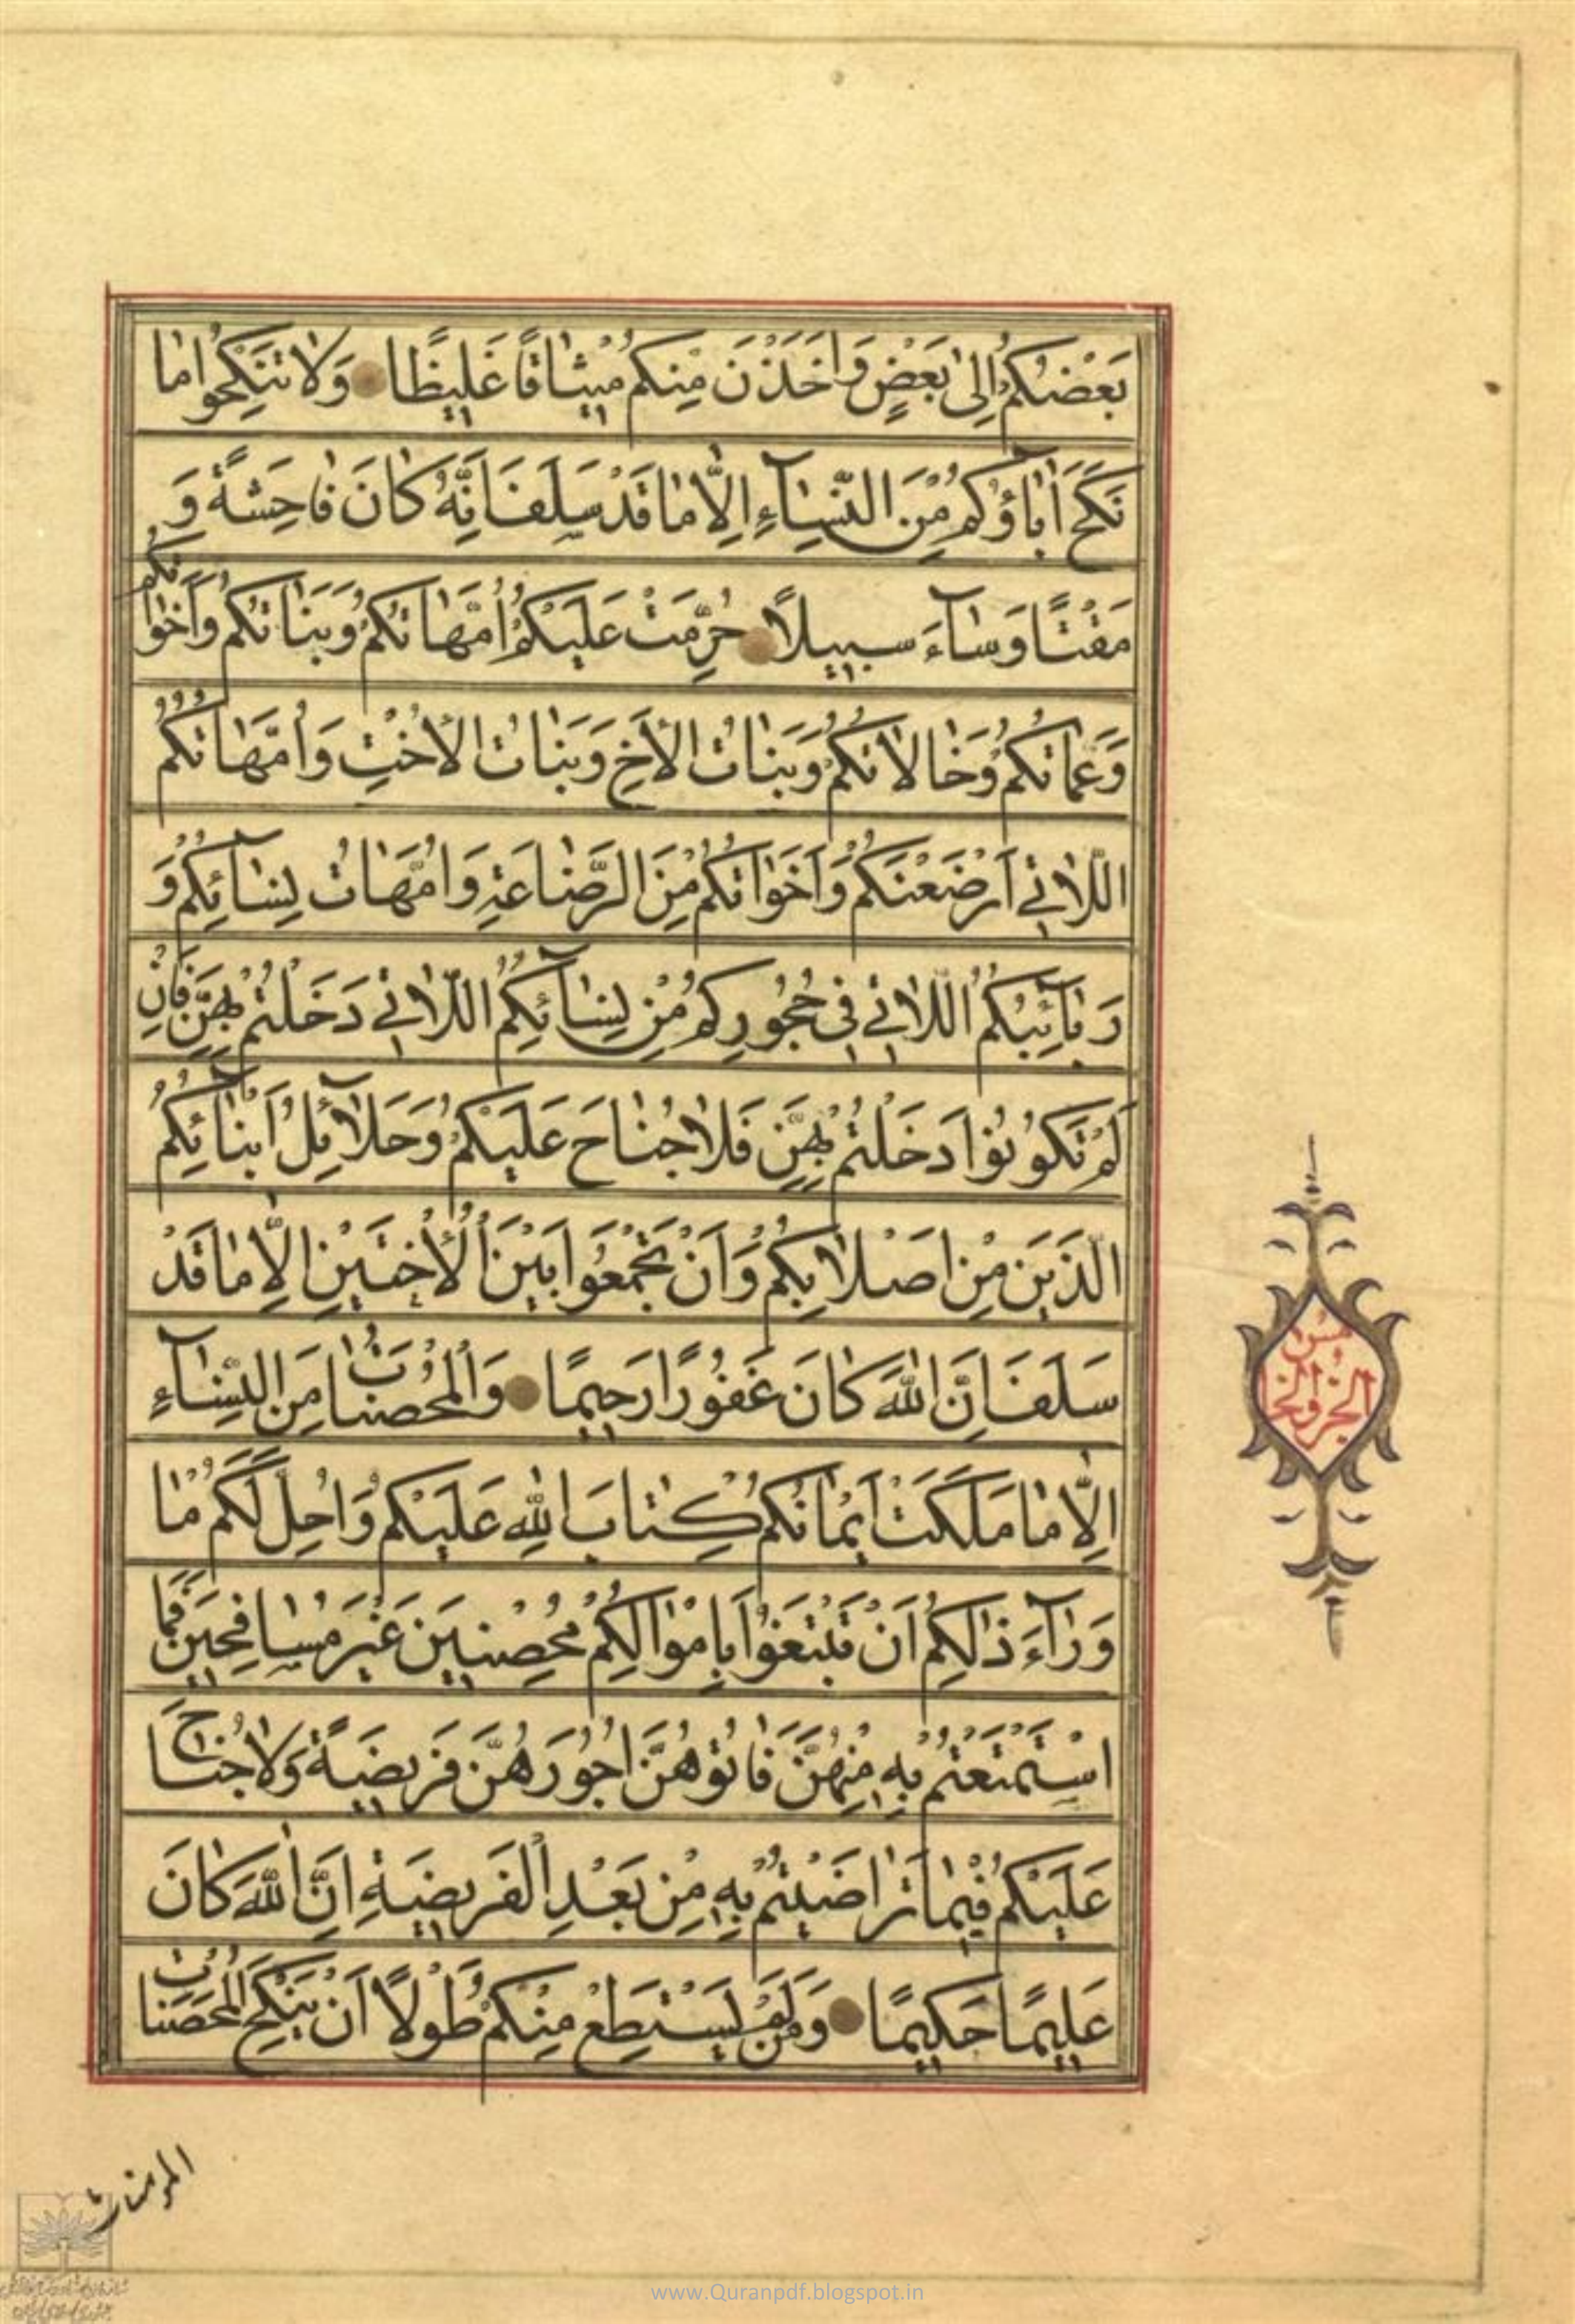 بَعْضُكُمْ اِلىٰ بَعْضٍ وَاَخَذْنَ مِنْكُمْ مِيْثٰاقًا غَلِيظًا وَلٰا تَنْكِحُوا مٰا
نَكَحَ اٰبٰاؤُكُمْ مِنَ النِّسٰآءِ اِلّٰا مٰا قَدْ سَلَفَ اِنَّهُ كٰانَ فٰاحِشَةً وَ
مَقْتًا وَسٰآءَ سَبِيلًا حُرِّمَتْ عَلَيْكُمْ اُمَّهٰاتُكُمْ وَبَنٰاتُكُمْ وَاَخَوٰاتُكُمْ
وَعَمّٰاتُكُمْ وَخٰالٰاتُكُمْ وَبَنٰاتُ الْاَخِ وَبَنٰاتُ الْاُخْتِ وَاُمَّهٰاتُكُمُ
اللّٰاتِي اَرْضَعْنَكُمْ وَاَخَوٰاتُكُمْ مِنَ الرَّضٰاعَةِ وَاُمَّهٰاتُ نِسٰآئِكُمْ وَ
رَبٰآئِبُكُمُ اللّٰاتِي فِي حُجُورِكُمْ مِنْ نِسٰآئِكُمُ اللّٰاتِي دَخَلْتُمْ بِهِنَّ فَاِنْ
لَمْ تَكُونُوا دَخَلْتُمْ بِهِنَّ فَلٰا جُنٰاحَ عَلَيْكُمْ وَحَلٰآئِلُ اَبْنٰآئِكُمُ
الَّذِينَ مِنْ اَصْلٰابِكُمْ وَاَنْ تَجْمَعُوا بَيْنَ الْاُخْتَيْنِ اِلّٰا مٰا قَدْ
سَلَفَ اِنَّ اللّٰهَ كٰانَ غَفُورًا رَحِيمًا وَالْمُحْصَنٰاتُ مِنَ النِّسٰآءِ
اِلّٰا مٰا مَلَكَتْ اَيْمٰانُكُمْ كِتٰابَ اللّٰهِ عَلَيْكُمْ وَاُحِلَّ لَكُمْ مٰا
وَرٰآءَ ذٰلِكُمْ اَنْ تَبْتَغُوا بِاَمْوٰالِكُمْ مُحْصِنِينَ غَيْرَ مُسٰافِحِينَ فَمَا
اسْتَمْتَعْتُمْ بِهِ مِنْهُنَّ فَاٰتُوهُنَّ اُجُورَهُنَّ فَرِيضَةً وَلٰا جُنٰاحَ
عَلَيْكُمْ فِيمٰا تَرٰاضَيْتُمْ بِهِ مِنْ بَعْدِ الْفَرِيضَةِ اِنَّ اللّٰهَ كٰانَ
عَلِيمًا حَكِيمًا وَمَنْ لَمْ يَسْتَطِعْ مِنْكُمْ طَوْلًا اَنْ يَنْكِحَ الْمُحْصَنٰاتِ
المؤمنات
www.Quranpdf.blogspot.in